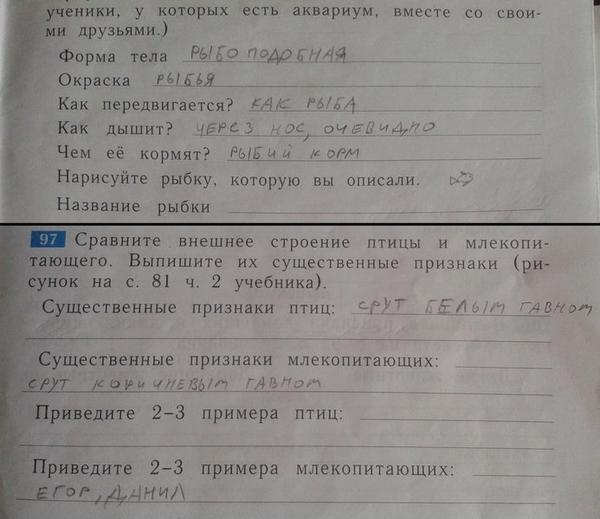 ученики, у которых есть аквариум, вместе со свои-
ми друзьями.)
Форма тела РЫБОПОДОБНАЯ
Окраска РЫБЬЯ
Как передвигается? КАК РЫБА
Как дышит? ЧЕРЕЗ НОС, ОЧЕВИДНО
Чем её кормят? РЫБИЙ КОРМ
Нарисуйте рыбку, которую вы описали.
Название рыбки
97 Сравните внешнее строение птицы и млекопи-
тающего. Выпишите их существенные признаки (ри-
сунок на с. 81 ч. 2 учебника).
Существенные признаки птиц: СРУТ БЕЛЫМ ГАВНОМ
Существенные признаки млекопитающих:
СРУТ КОРИЧНЕВЫМ ГАВНОМ
Приведите 2–3 примера птиц:
Приведите 2–3 примера млекопитающих:
ЕГОР, ДАНИЛ